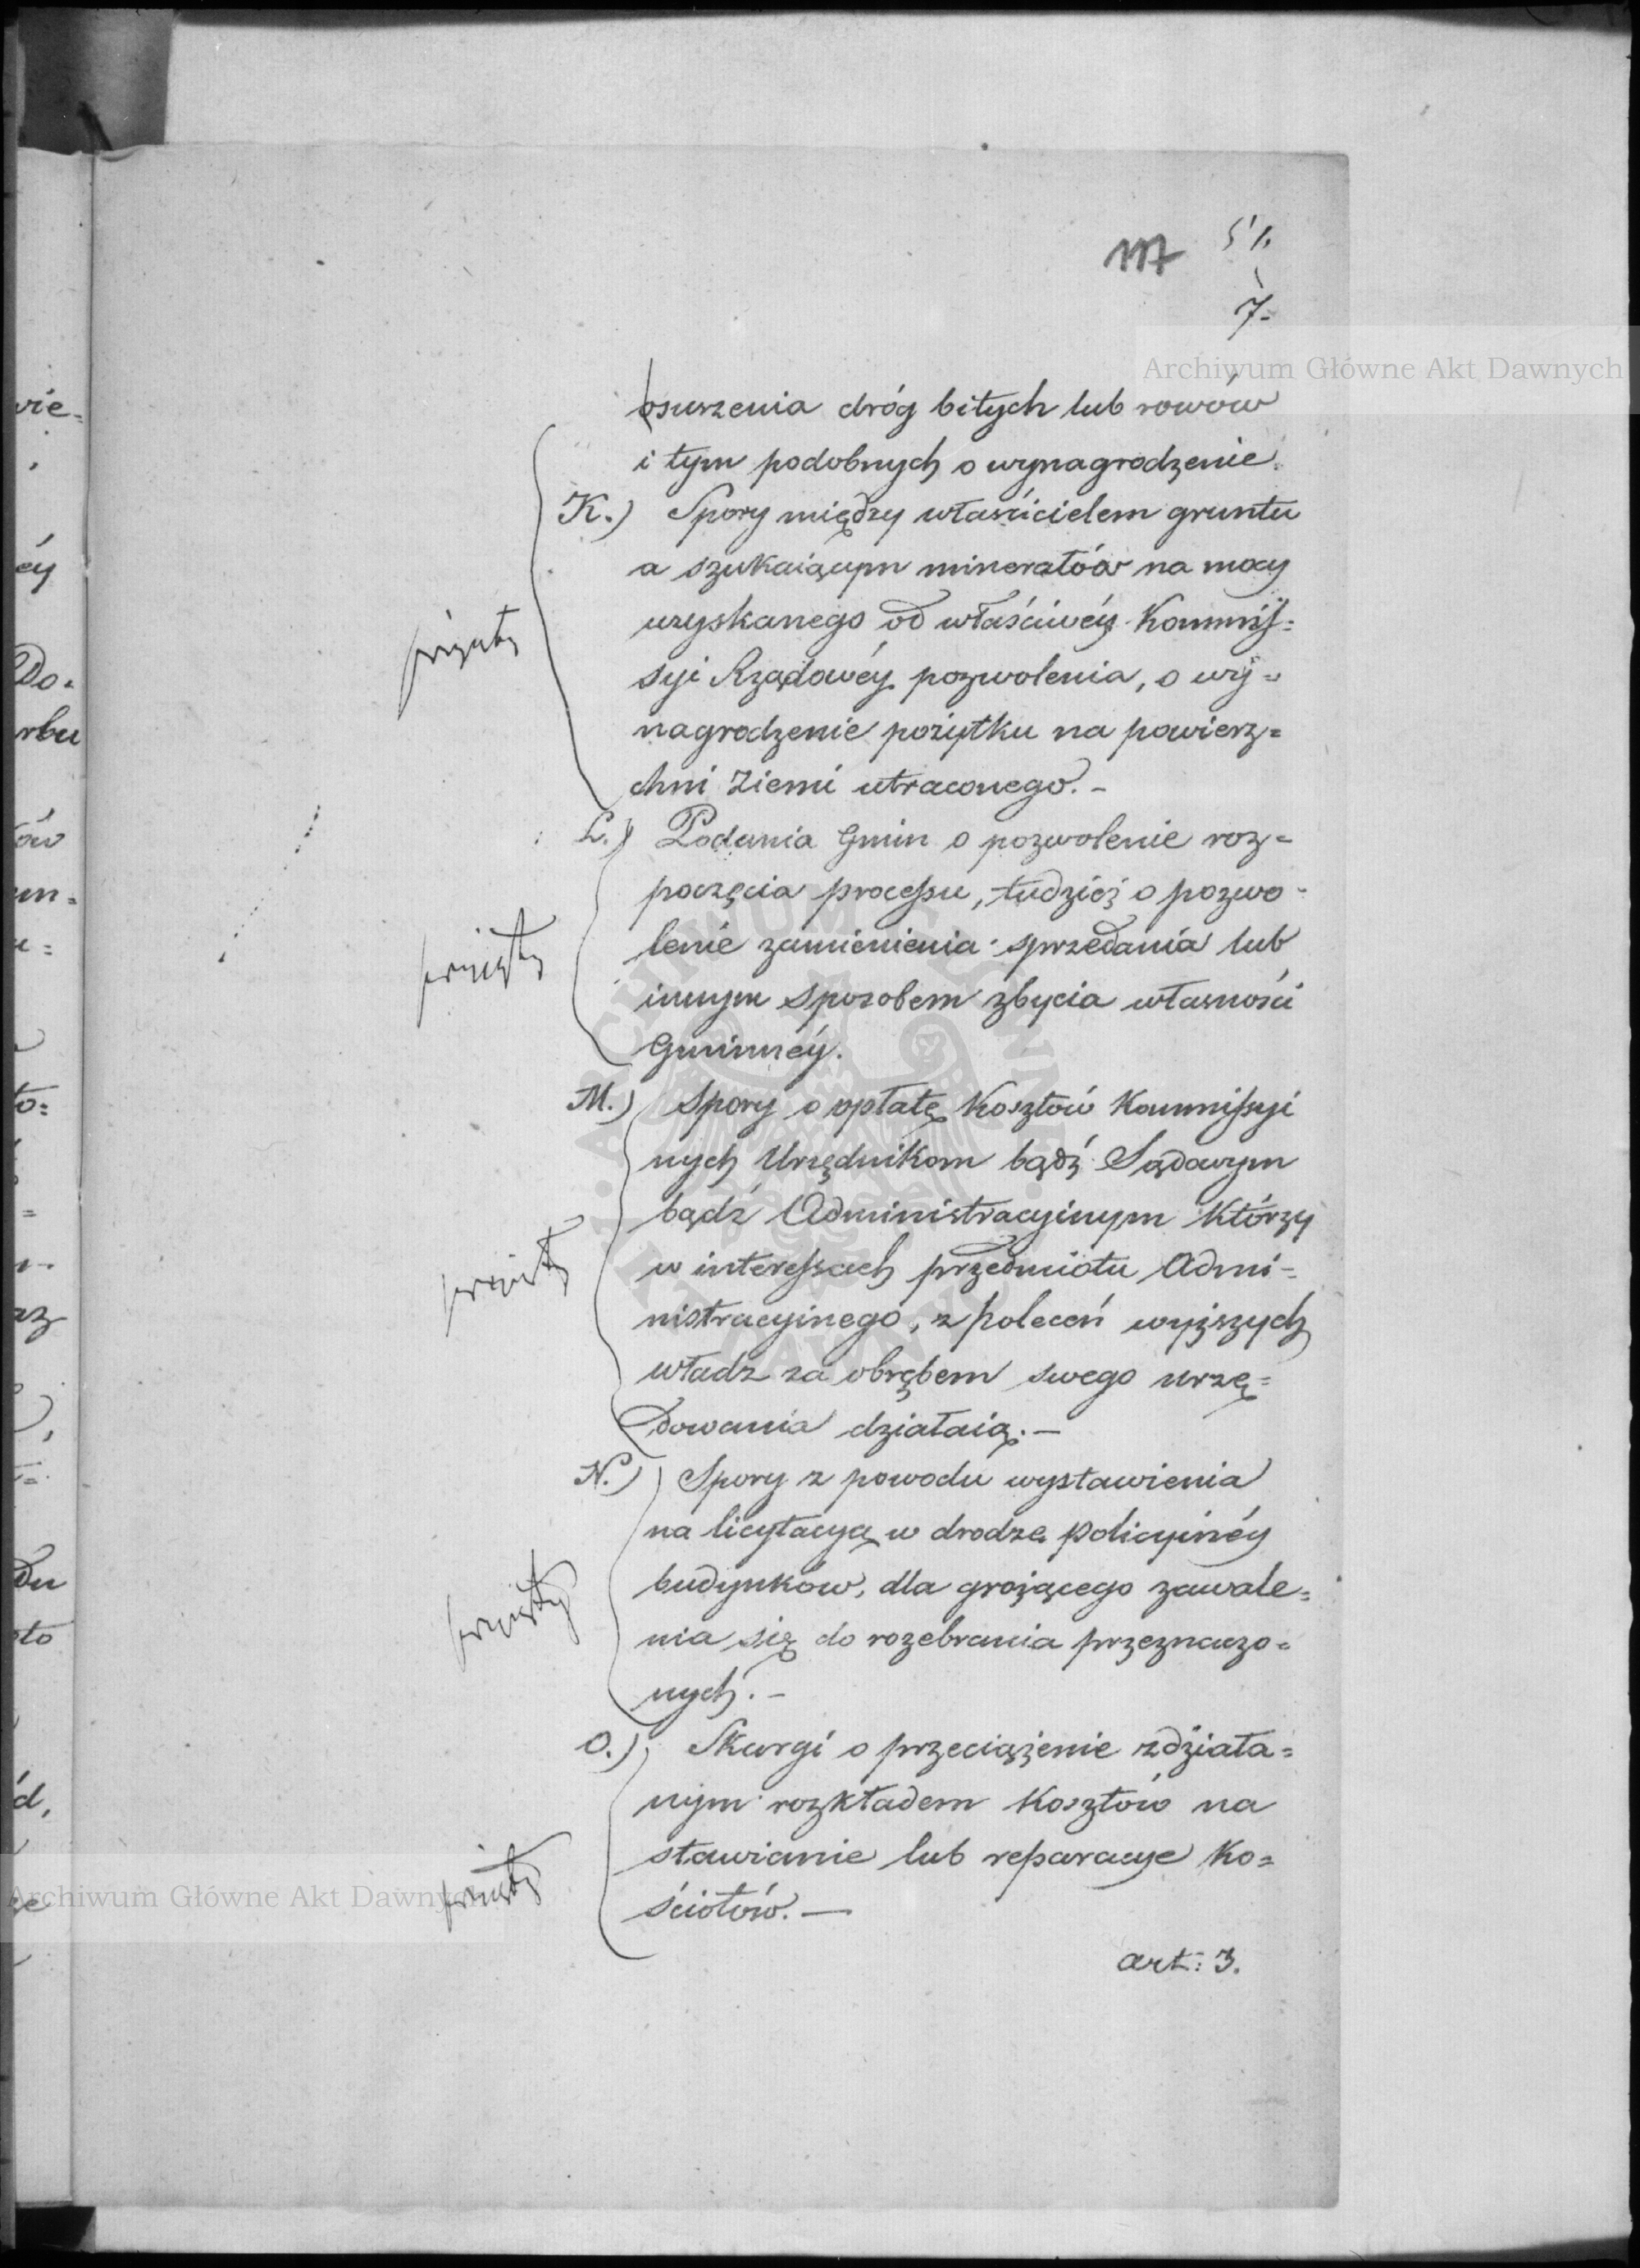 117 51.
7.
Archiwum Główne Akt Dawnych
osuszenia dróg bitych lub rowów
i tym podobnych o wynagrodzenie.
K.) Spory między właścicielem gruntu
a szukaiącym minerałów na mocy
uzyskanego od właściwéy Kommis=
syi Rządowéy pozwolenia, o wy=
przyięty
nagrodzenie pożytku na powierz=
chni Ziemi utraconego. -
L.) Podania Gmin o pozwolenie roz=
poczęcia processu, tudzież o pozwo-
lenie zamienienia sprzedania lub
przyięty
innym sposobem zbycia własności
Gminnéy.
M.) Spory o opłatę Kosztów Kommissyi
nych Urzędnikom bądź Sądowym
bądź Administracyinym Którzy
w interessach przedmiotu Admi=
przyięty
nistracyinego, z poleceń wyższych
władz za obrębem swego urzę=
dowania działaią. -
N.) Spory z powodu wystawienia
na licytacyą w drodze policyinéy
budynków, dla grożącego zawale=
przyięty
nia się do rozebrania przeznaczo=
nych. -
O.) Skargi o przeciążenie zdziała=
nym rozkładem Kosztów na
stawianie lub reparacye Ko=
przyięty
ściołów. -
Archiwum Główne Akt Dawnych
art: 3.